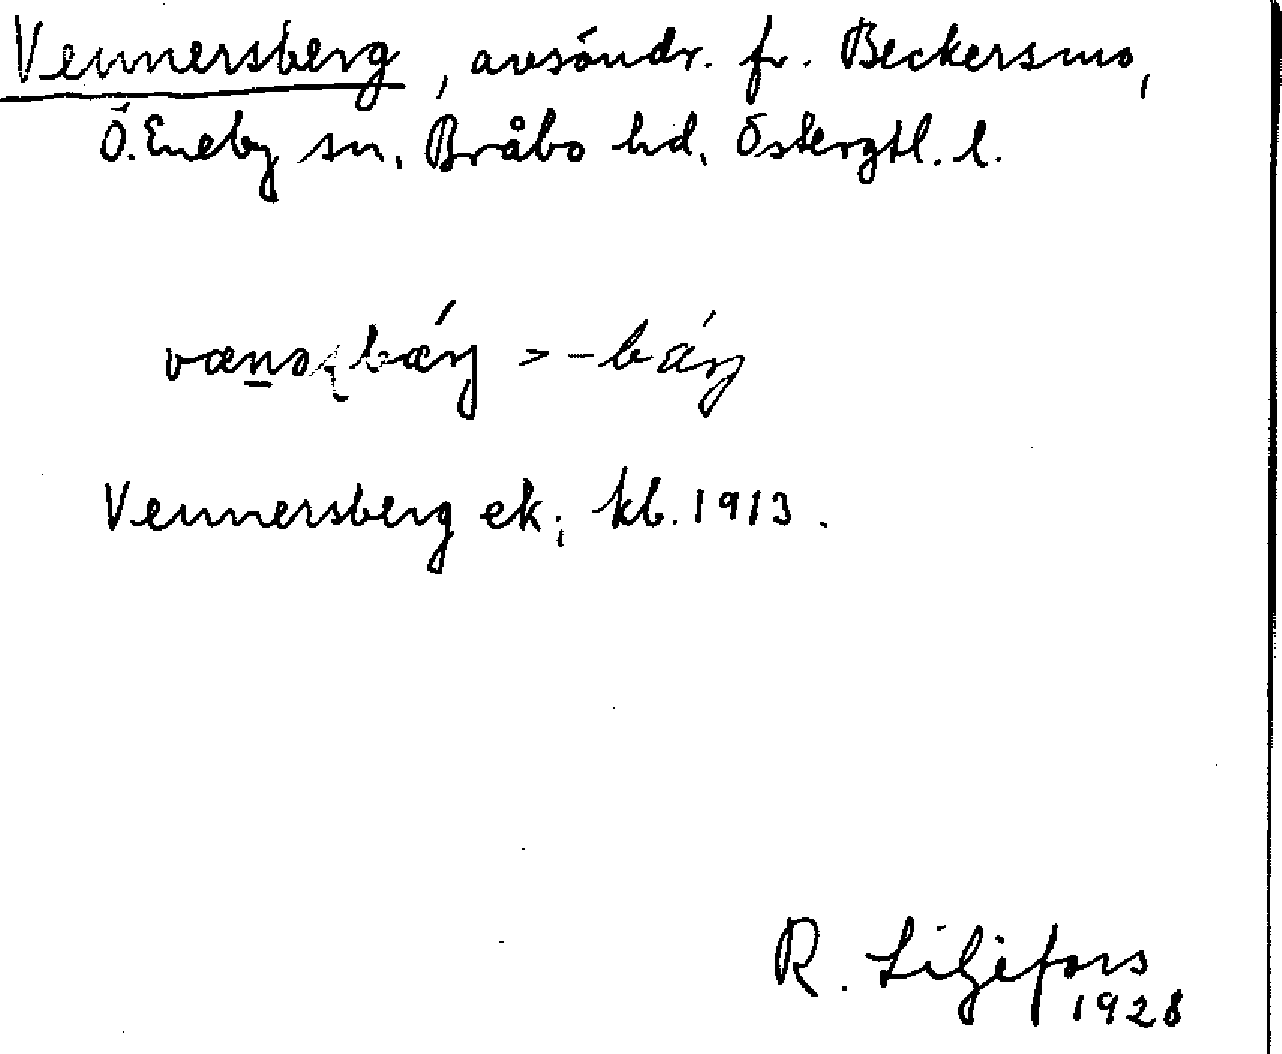 Vennersberg, avsöndr. fr. Beckersmo,
Ö. Eneby sn. Bråbo hd. Östergtl. l.
Vennersberg ek; kb. 1913.
R. Liljefors
1928